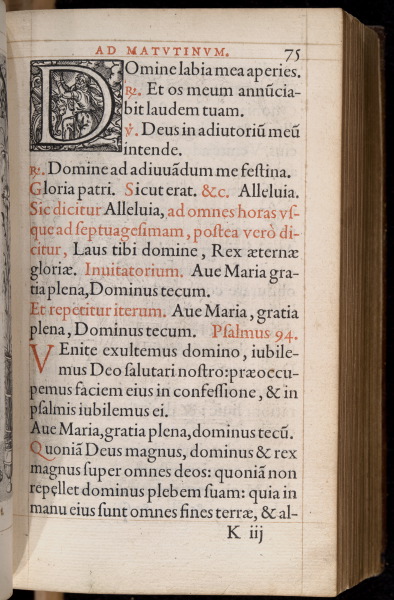 AD MATVTINVM. 75
Domine labia mea aperies.
℟. Et os meum annũcia-
bit laudem tuam.
℣. Deus in adiutoriũ meũ
intende.
℟. Domine ad adiuuãdum me feſtina.
Gloria patri. Sicut erat. &c. Alleluia.
Sic dicitur Alleluia, ad omnes horas vſ-
que ad ſeptuageſimam, poſtea verò di-
citur, Laus tibi domine, Rex æternæ
gloriæ. Inuitatorium. Aue Maria gra-
tia plena, Dominus tecum.
Et repetitur iterum. Aue Maria, gratia
plena, Dominus tecum. Pſalmus 94.
VEnite exultemus domino, iubile-
mus Deo ſalutari noſtro: præoccu-
pemus faciem eius in confeſſione, & in
pſalmis iubilemus ei.
Aue Maria, gratia plena, dominus tecũ.
Quoniã Deus magnus, dominus & rex
magnus ſuper omnes deos: quoniã non
repellet dominus plebem ſuam: quia in
manu eius ſunt omnes fines terræ, & al-
K iij